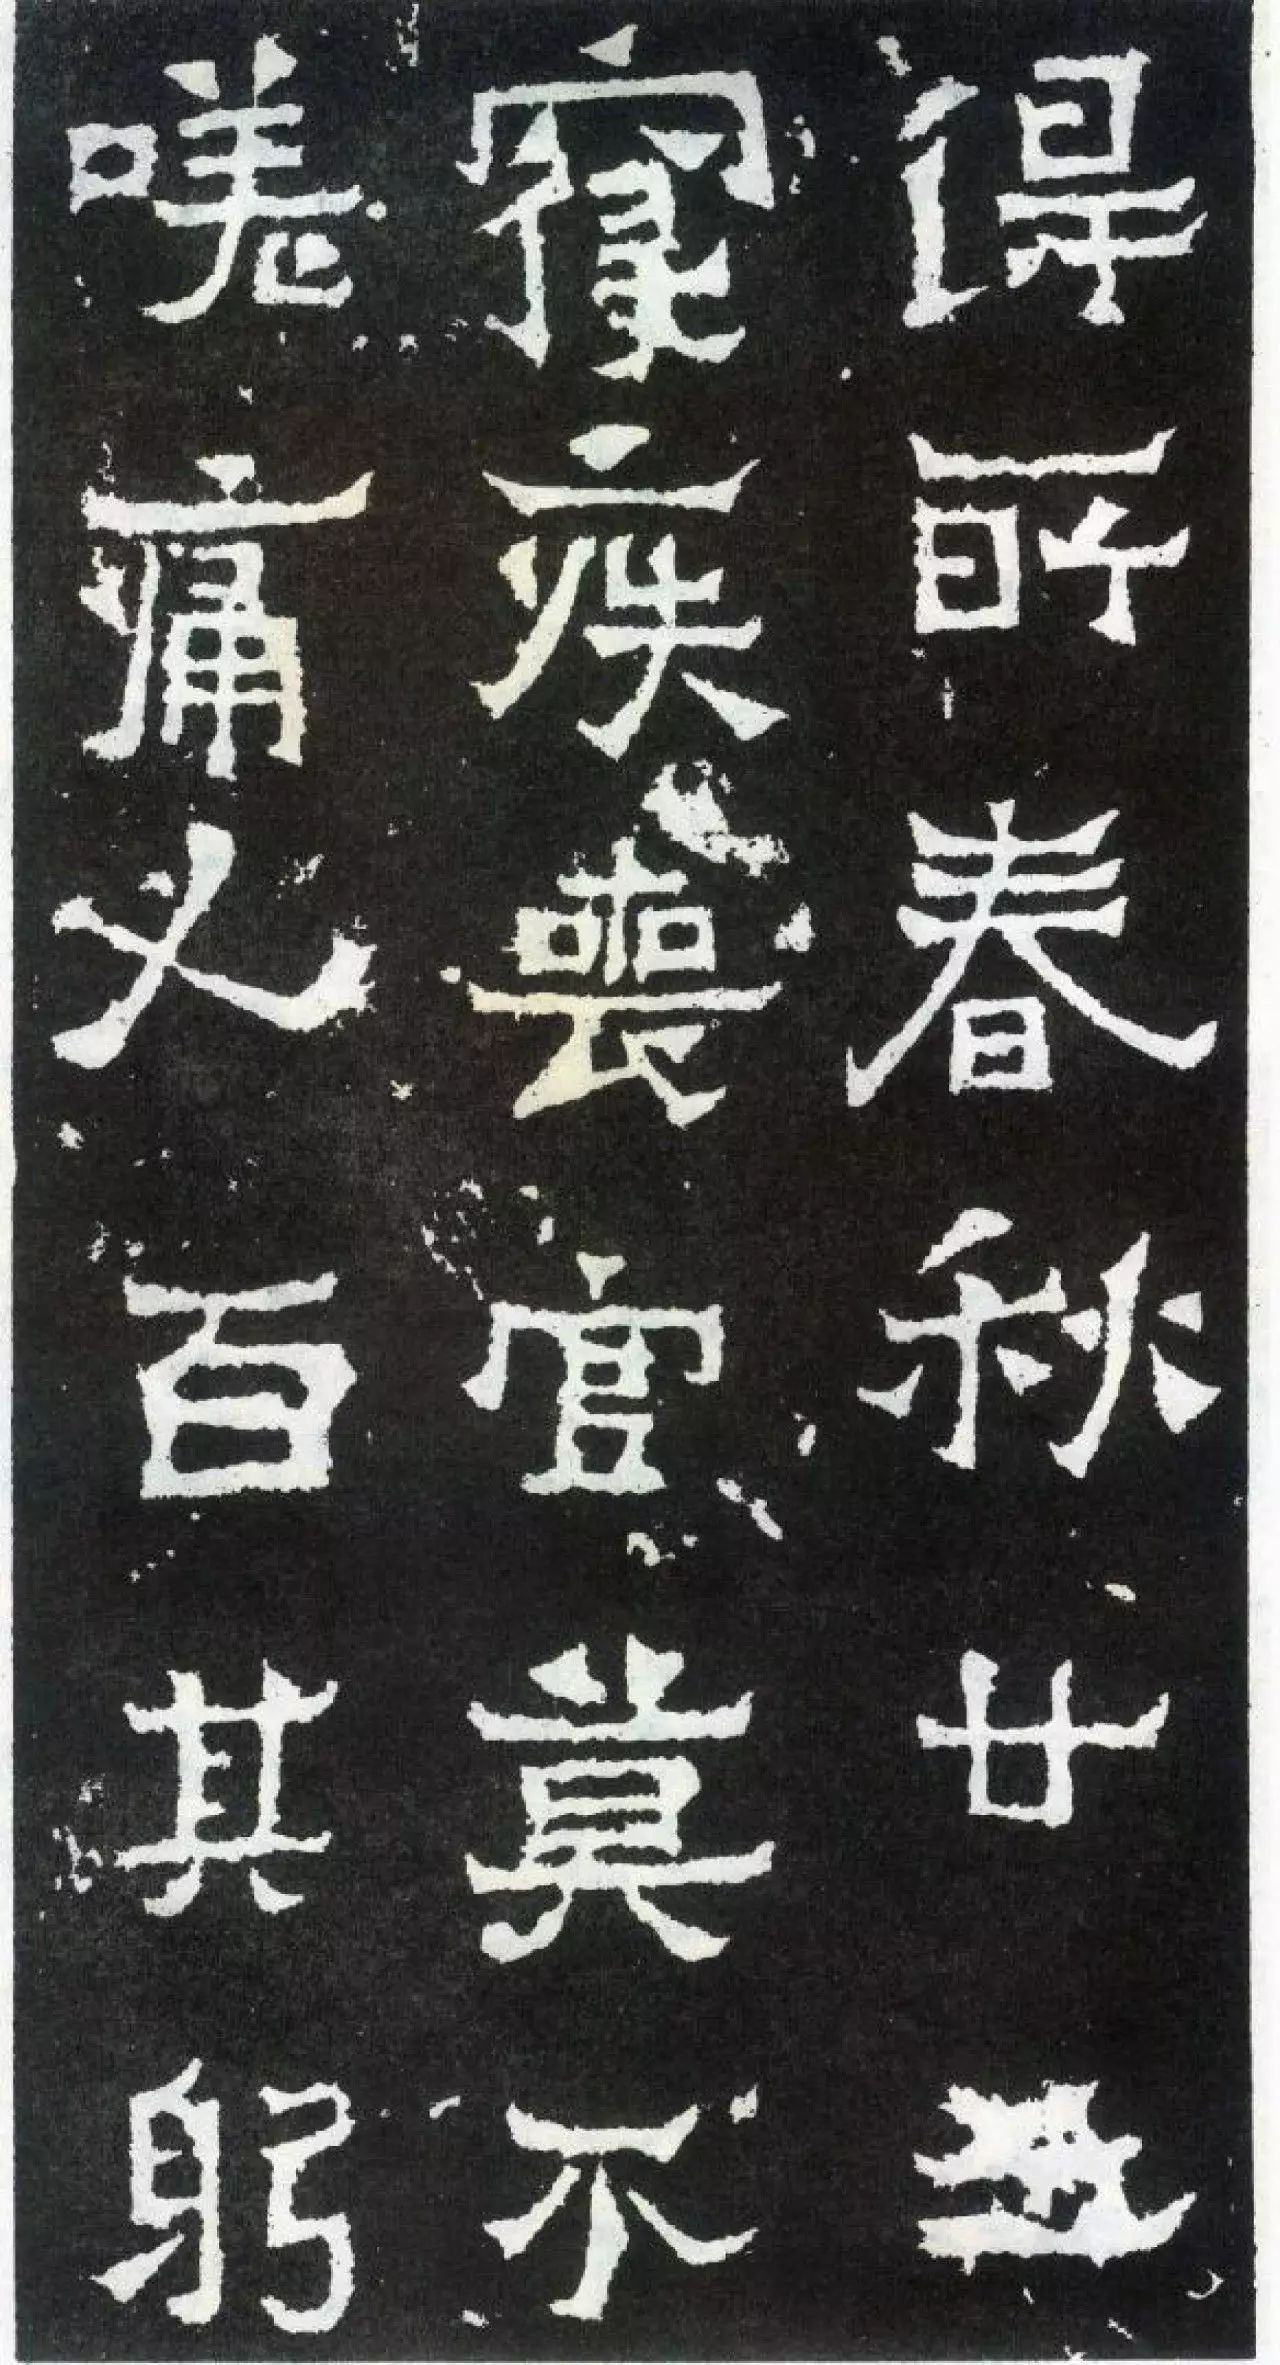 得所春秋廿五
寢疾喪官莫不
嗟痛人百其躬